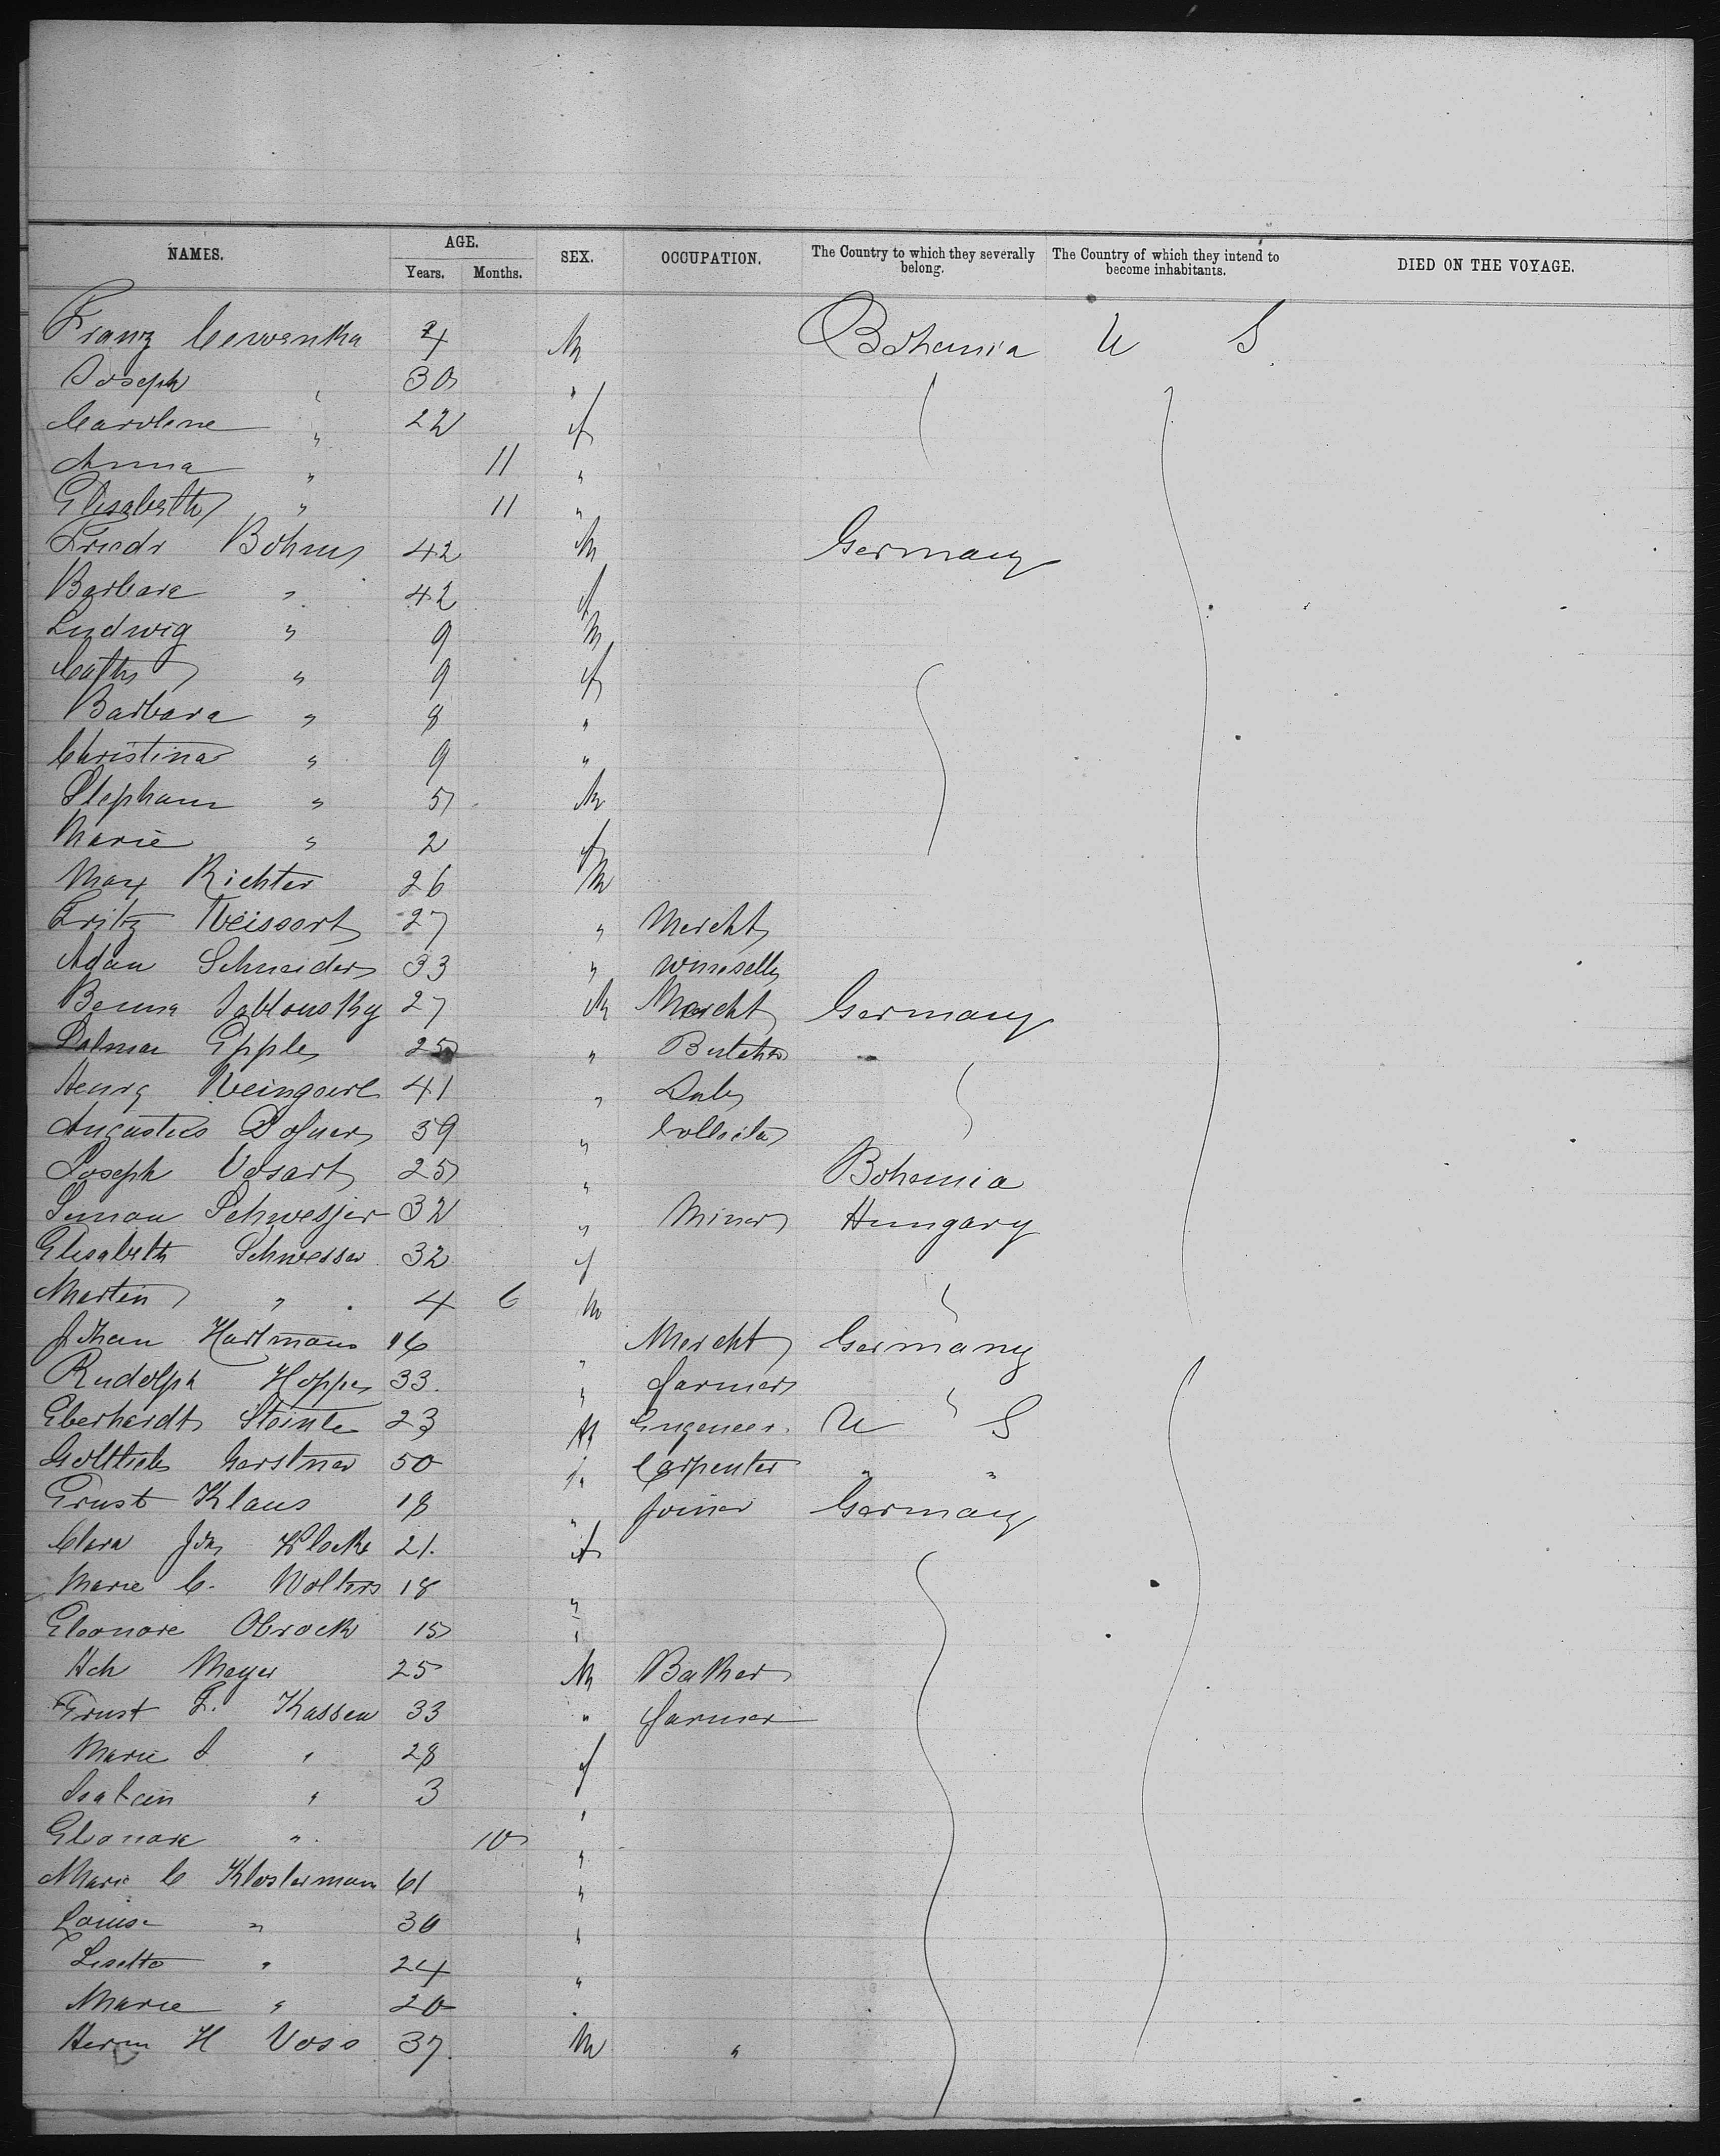 NAMES. AGE. SEX. OCCUPATION. The Country to which they severally belong. The Country of which they intend to become inhabitants. DIED ON THE VOYAGE.
Years. Months.
Franz Cerwenka 4 M Bohemia U S
Joseph " 30 "
Carolene " 22 f
Anna " 11 "
Elisabeth " 11 "
Friedr Bohm 42 M Germany
Barbara " 42 f
Ludwig " 9 M
Cath " 9 f
Barbara " 8 "
Christina " 9 "
Stephan " 5 M
Marie " 2 f
Max Richter 26 M
Fritz Weissert 27 " Mercht
Adam Schneider 33 "
Jablonsky 27 M Mercht Germany
Epple 25 " Butcher
Henry 41 "
Augustus 39 "
Joseph 25 " Bohemia
Simon 32 " Miner Hungary
Elisabeth Schwesser 32 f
Martin " 4 6 M
Johan Hartmann 16 " Mercht Germany
Rudolph Hoppe 33. " farmer
Eberhardt 23 M Engeneer. U S
Gottlieb Gerstner 50 " Carpenter " "
Ernst Klaus 18 " Joiner Germany
Clara Klocke 21. f
Marie C. Wolters 18 "
Eleonore Obrock 15 "
Hch Meyer 25 M Baker
Ernst F. Kassen 33 " farmer
Marie " 28 f
" 3 "
Eleonore " 10 "
Marie C Klosterman 61 "
Louise " 30 "
Lisette " 24 "
Marie " 20 "
Herm H Voss 37. M "